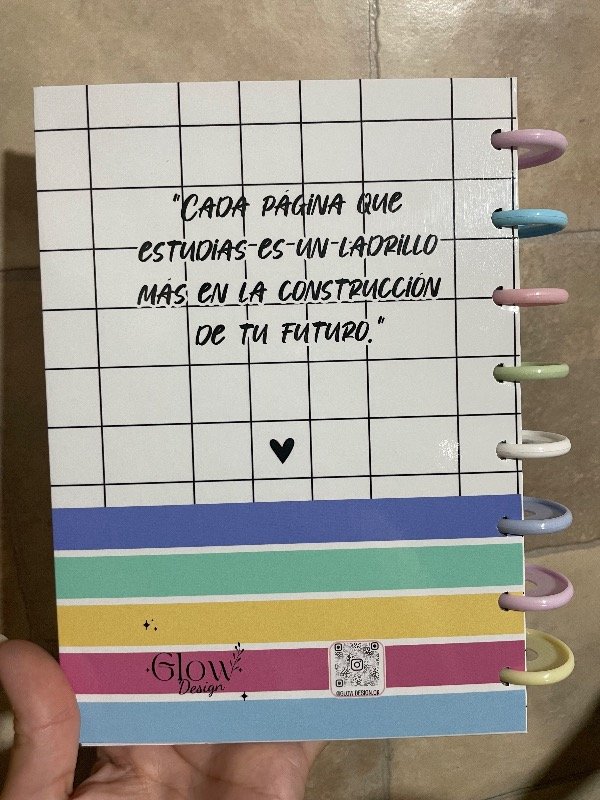 "CADA PÁGINA QUE
ESTUDIAS ES UN LADRILLO
MÁS EN LA CONSTRUCCIÓN
DE TU FUTURO."
Glow
Design
@GLOW.DESIGN.CR